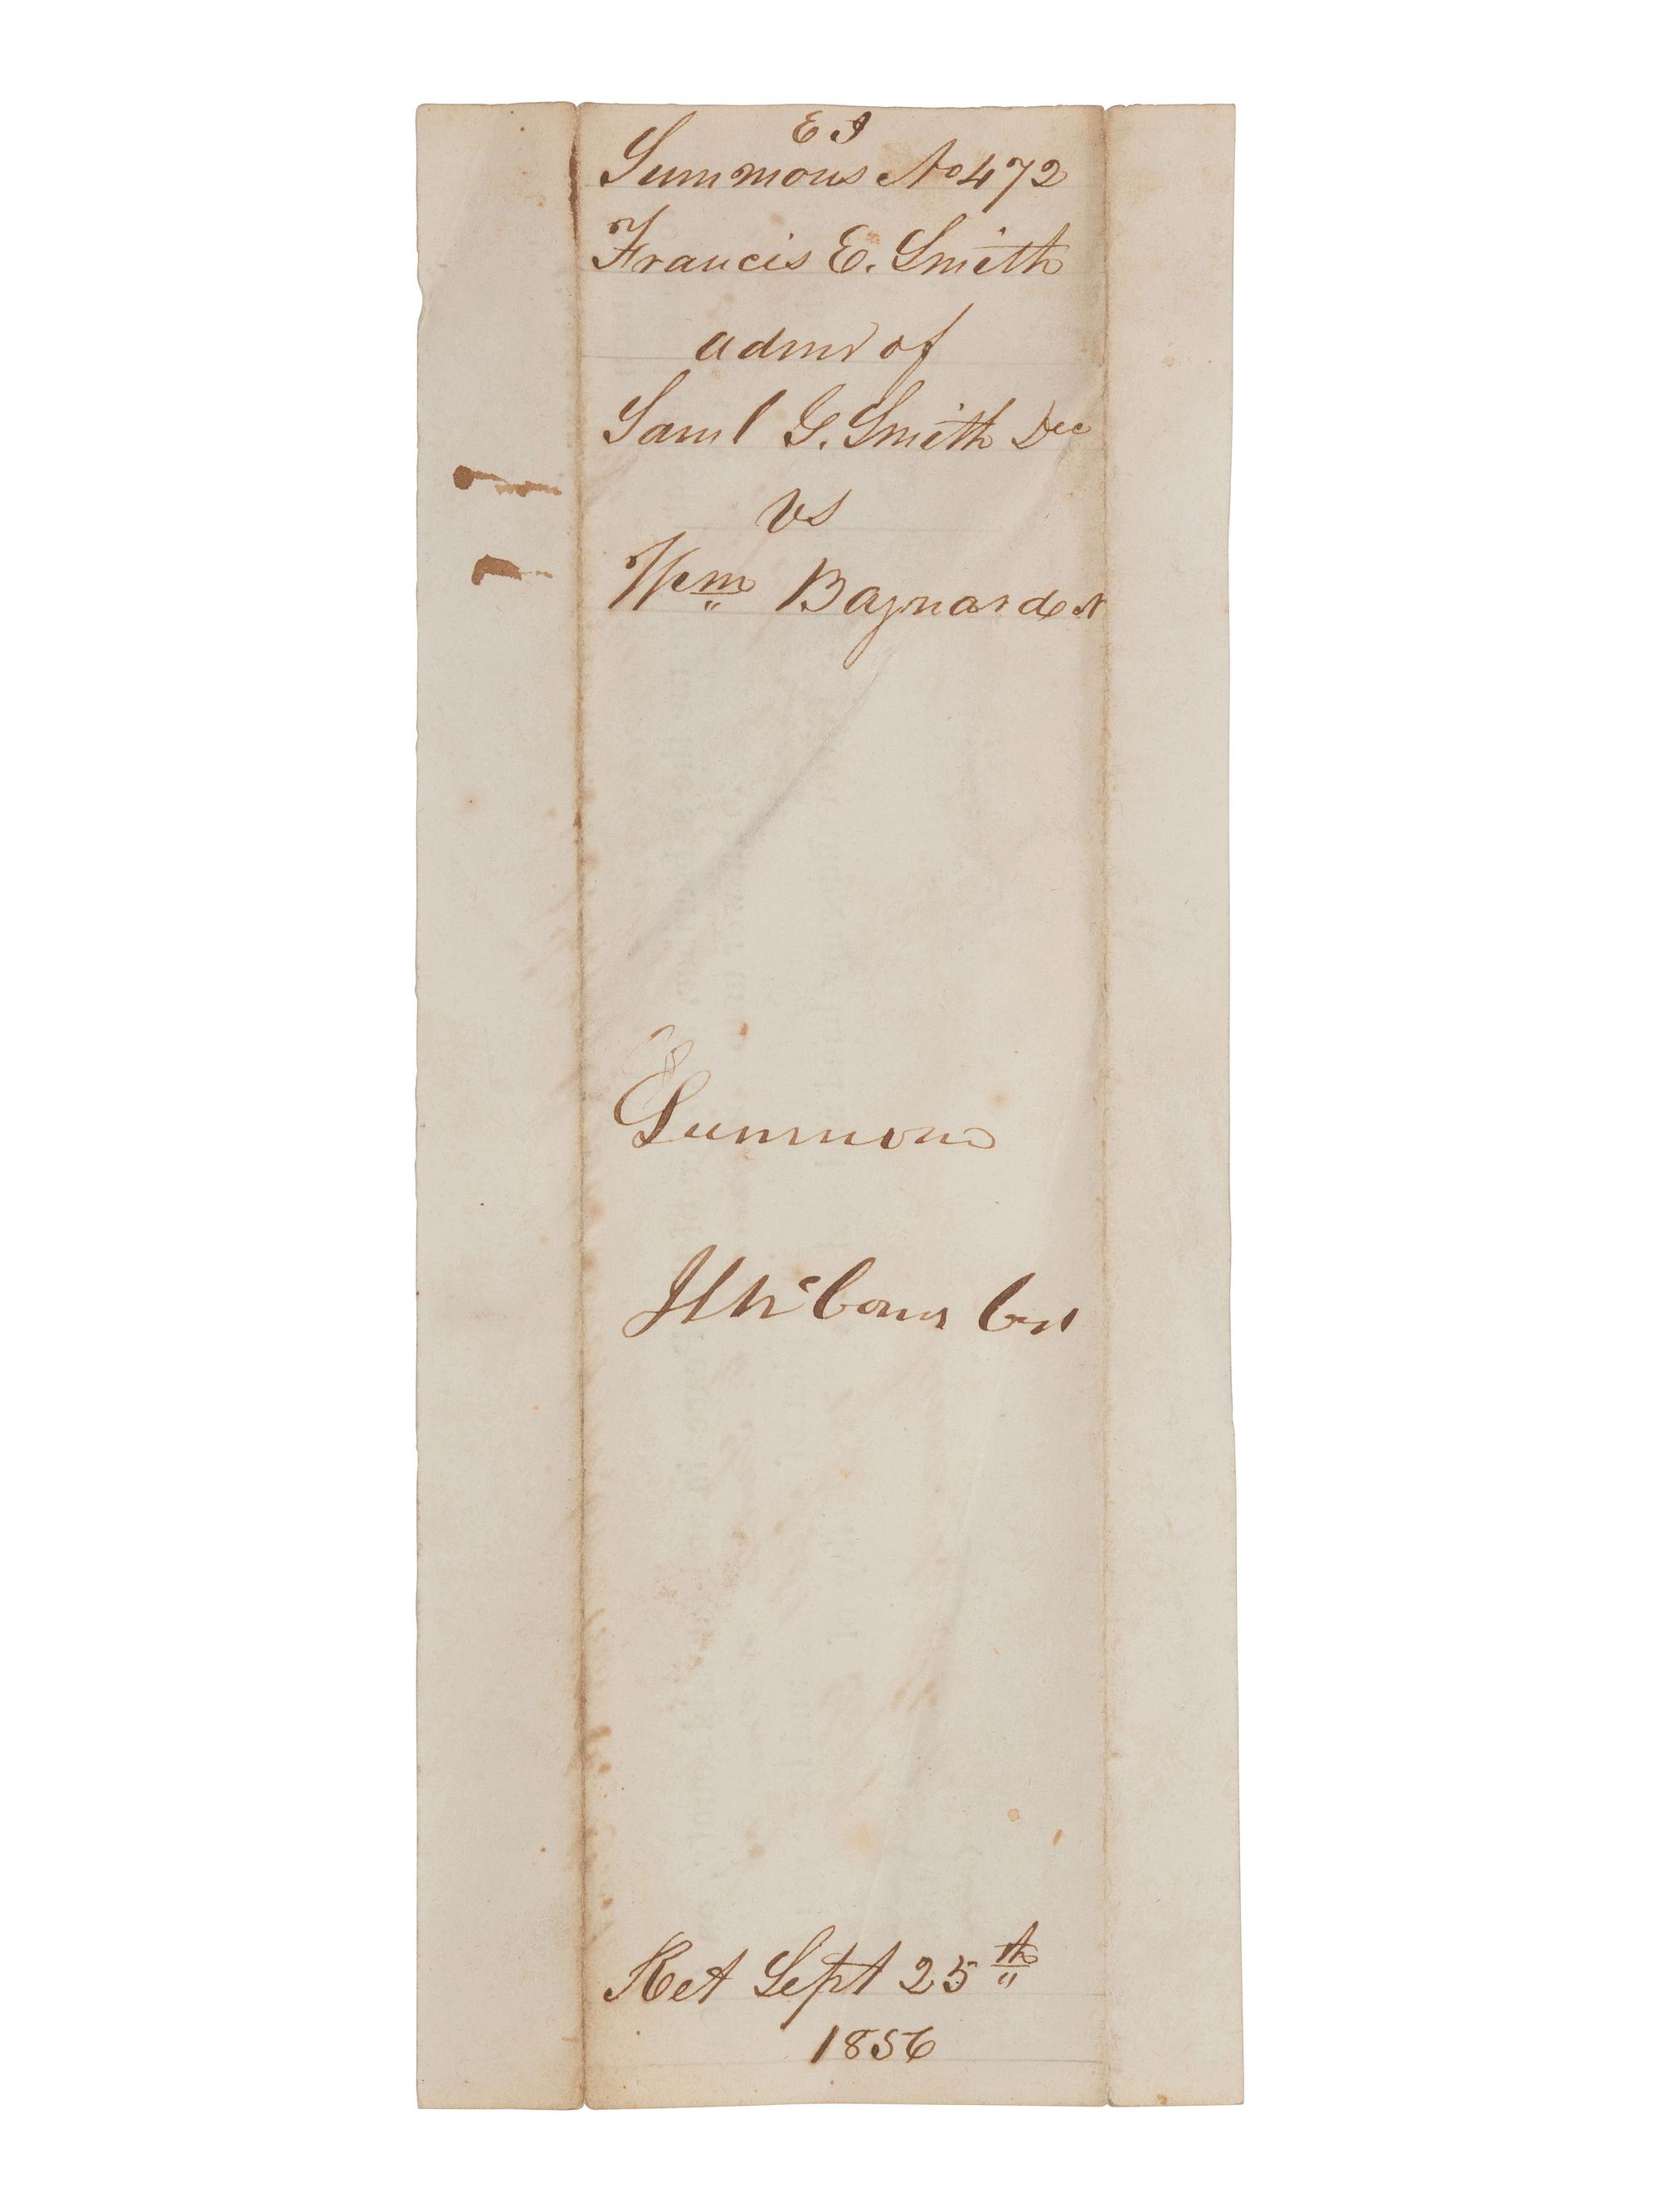 Summons No 472
Francis E. Smith
admr of
Saml G. Smith Dec
vs
Wm Baynard
Summons
Ret Sept 25th
1856